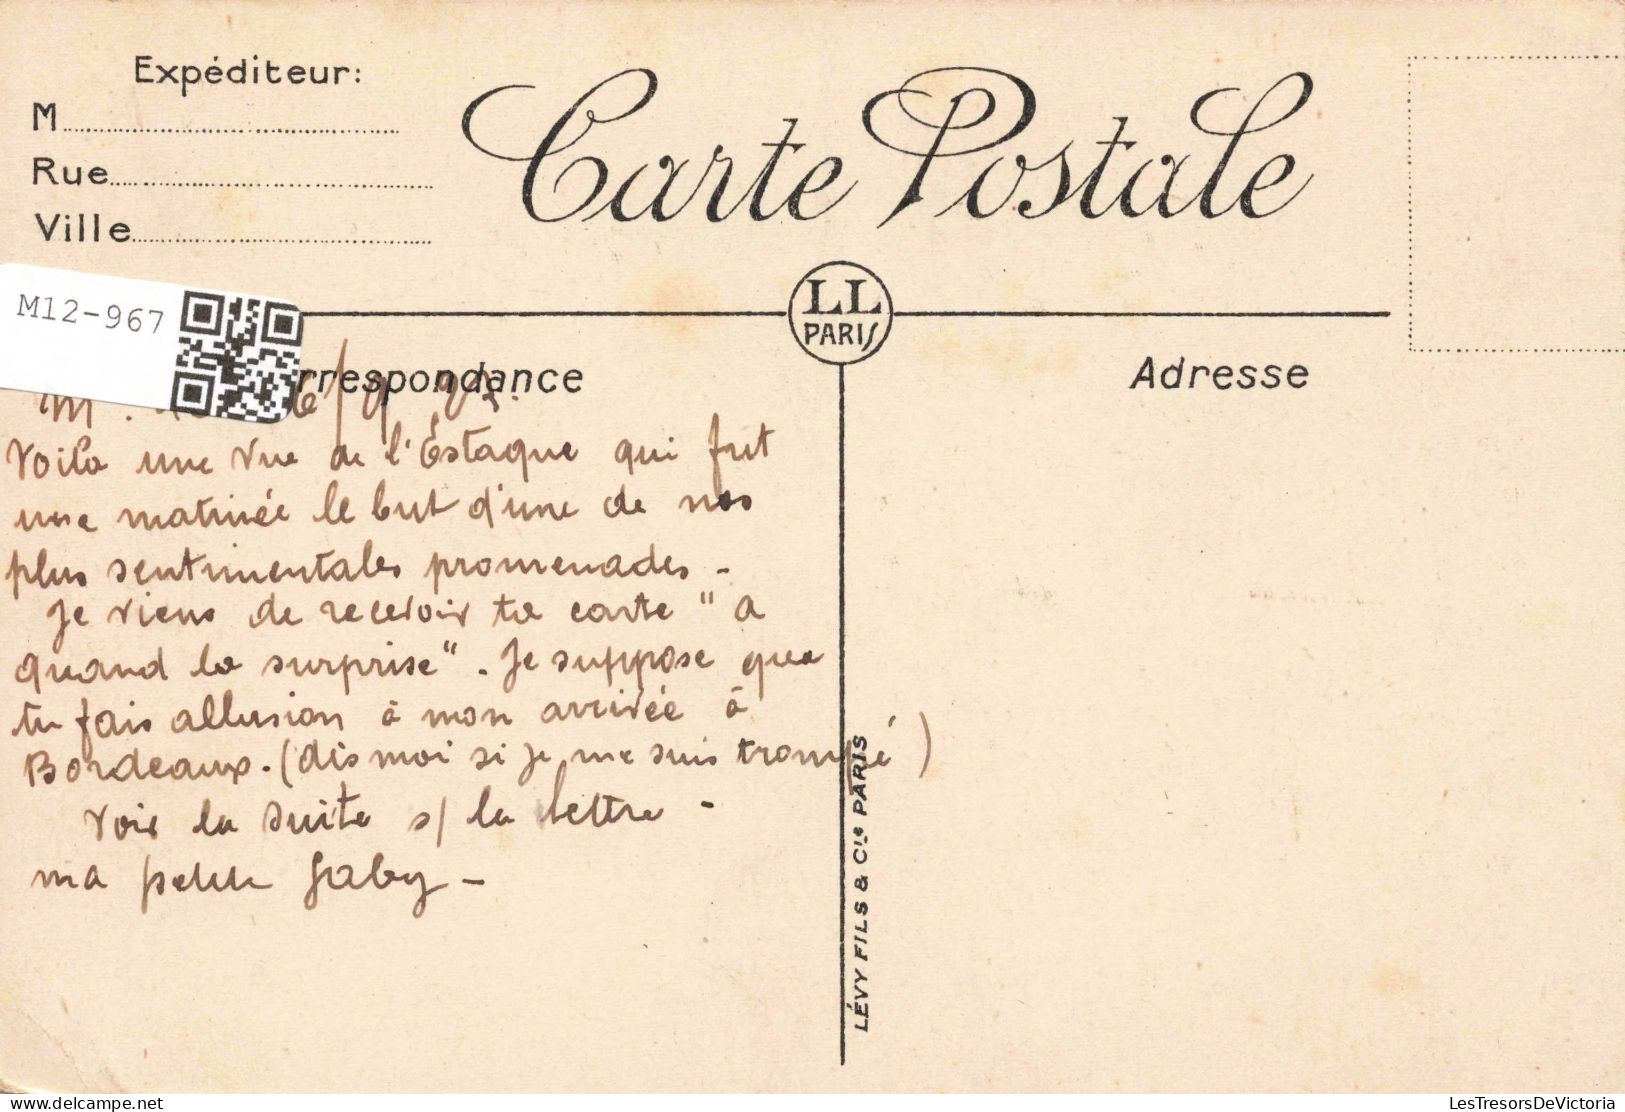 Expéditeur:
M
Rue
Ville
Carte Postale
M12-967
LL
PARIS
rrespondance
Adresse
Voila une vue de l'Éstaque qui fut
une matinée le but d'une de nos
plus sentimentales promenades -
Je viens de recevoir ta carte " a
quand la surprise". Je suppose que
tu fais allusion à mon arrivée à
Bordeaux. (dis moi si je me suis trompé)
Voir la suite s/ la lettre -
ma petite Gaby -
LÉVY FILS & Cie PARIS
www.delcampe.net
LesTresorsDeVictoria